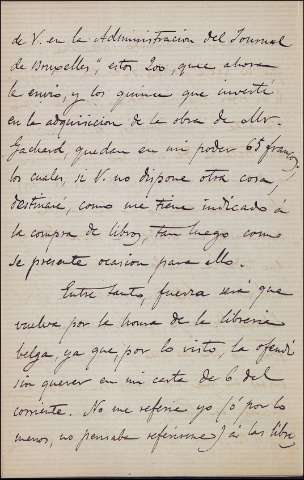 de V. en la Administracion del Journal
de Bruxelles", estos 200, que ahora
le envio, y los quince que invertí
en la adquisicion de la obra de Mr.
Gachard, quedan en mi poder 65 francos,
los cuales, si V. no dispone otra cosa,
destinaré, como me tiene indicado á
la compra de libros, tan luego como
se presente ocasion para ello.
Entre tanto, fuerza será que
vuelva por la honra de la libreria
belga, ya que por lo visto, la ofendí
sin querer en mi carta de 6 del
corriente. No me referia yo (ó por lo
menos, no pensaba referirme) á las libre